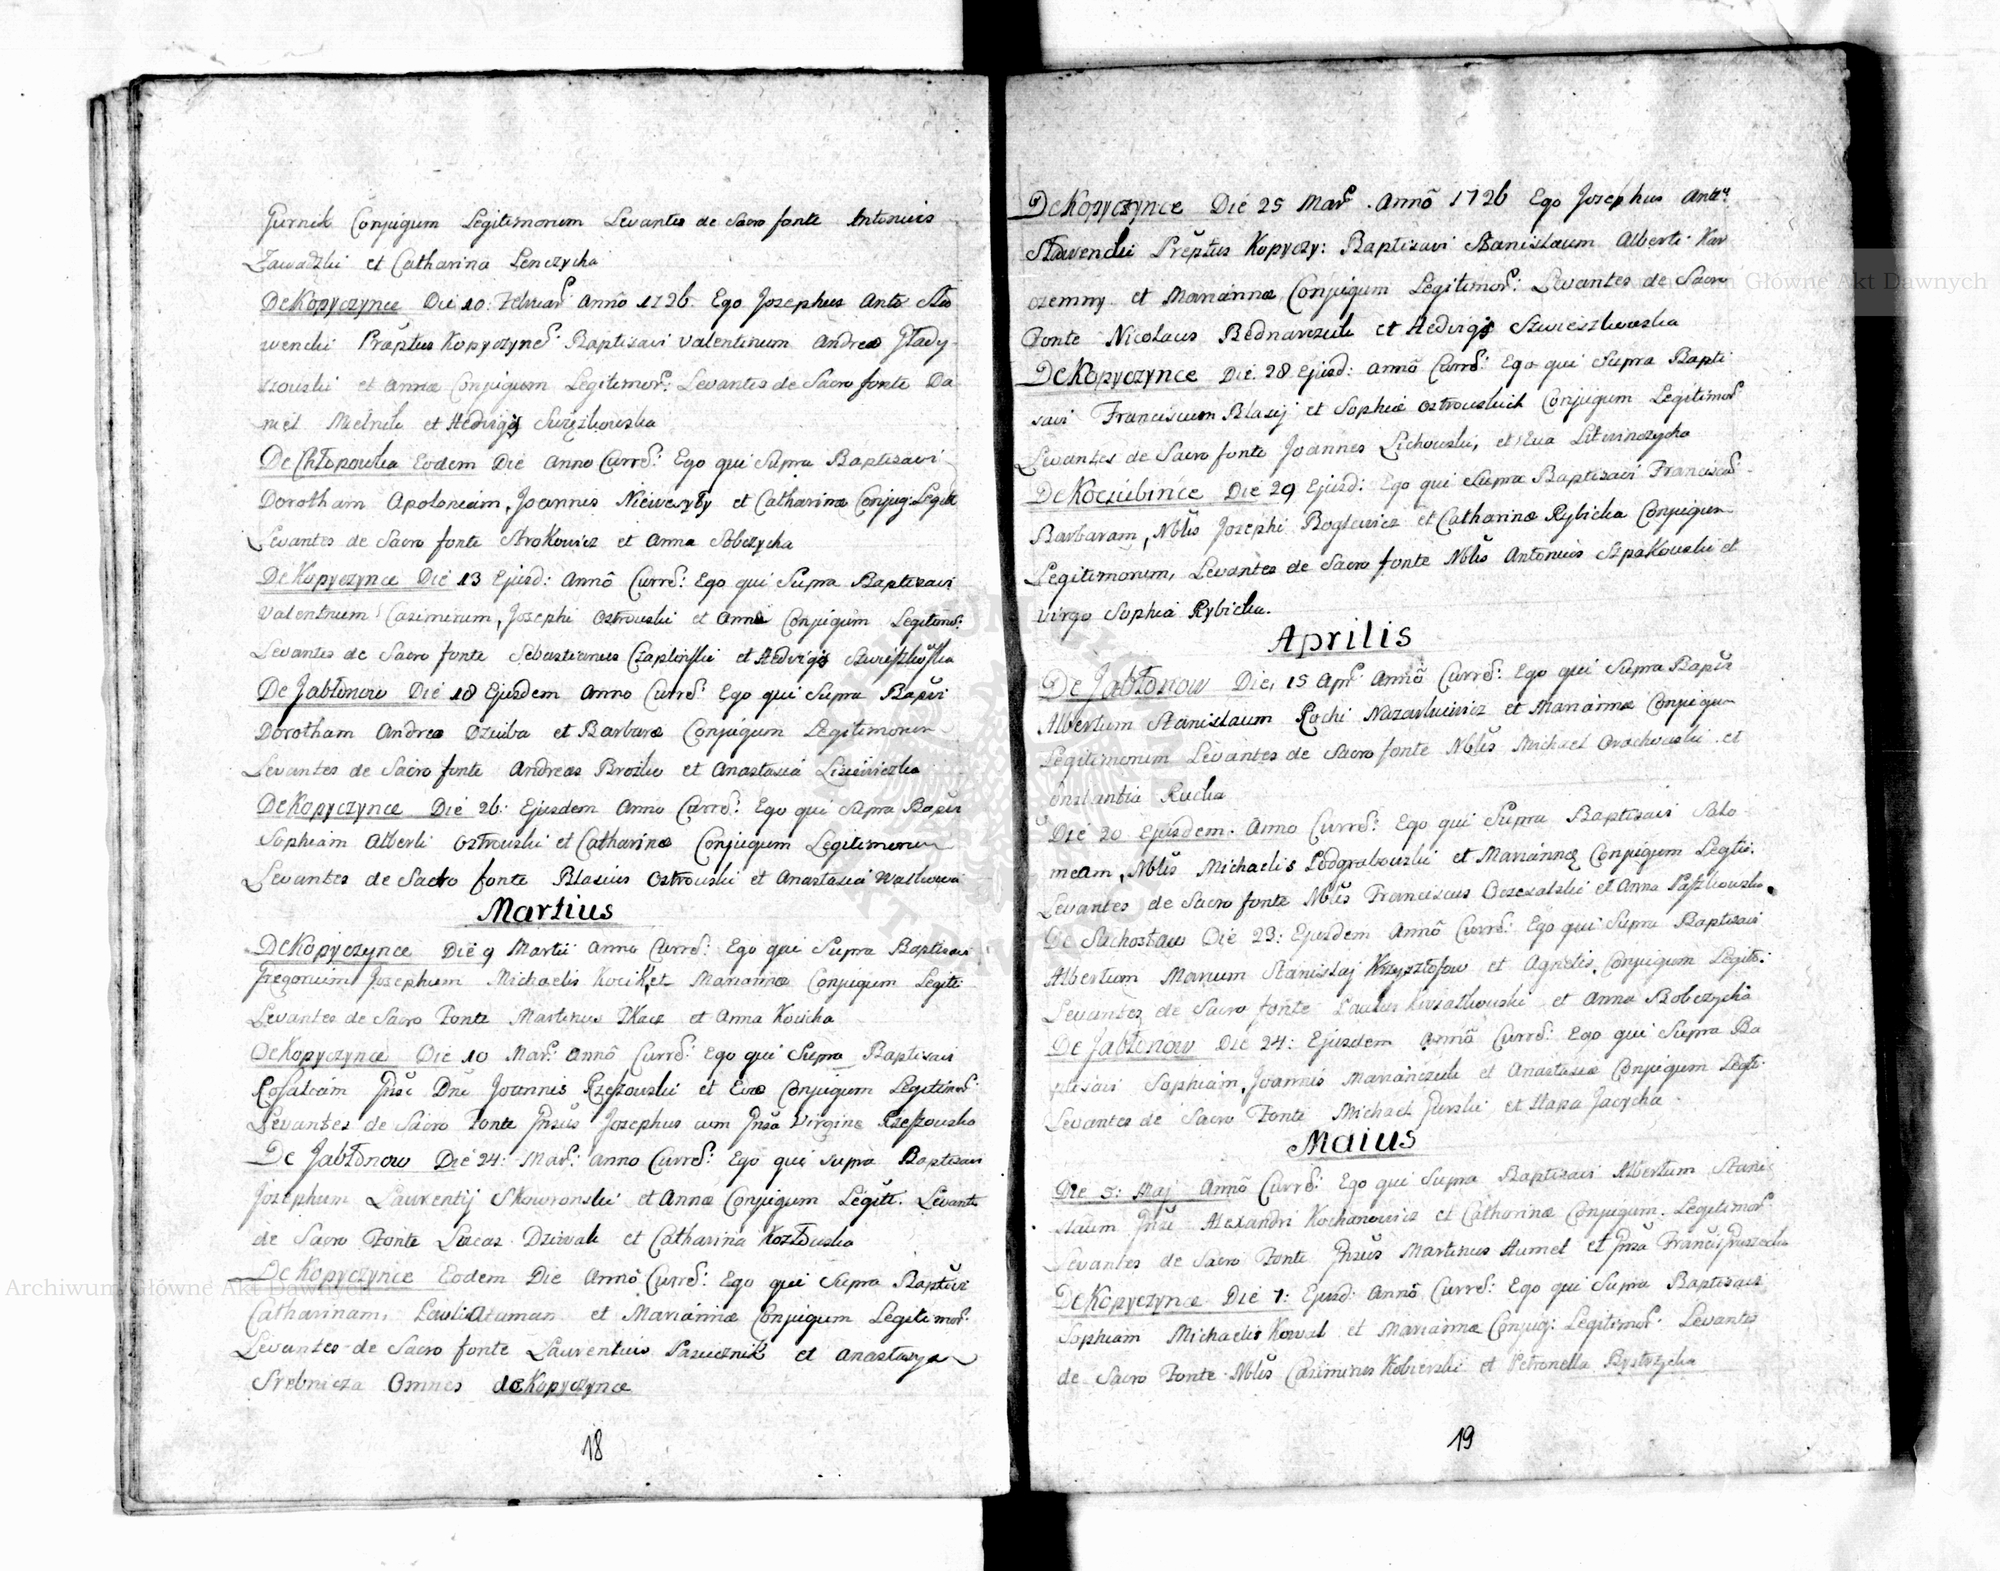 Gurnik Conjugum Legitimorum Levantes de Sacro fonte Antonius
Zawadzki et Catharina Lenczycha
De Kopyczynce Die 10: Februar: Annô 1726. Ego Josephus Anto: Sta
wencki Præptus Kopyczyne: Baptisavi Valentinum Andreæ Głady-
szowski et Annæ Conjugum Legitimor: Levantes de Sacro fonte Da
niel Mielnik et Hedvigis
De Chłopowka Eodem Die Anno Curre: Ego qui Supra Baptisavi
Dorotham Apoloniam, Joannis et Catharinæ Conjug: Legit
Levantes de Sacro fonte Strokowicz et Anna Sobczycha
De Kopyczynce Die 13 Ejusd: Annô Curre: Ego qui Supra Baptisavi
Valentinum Casimirum, Josephi Ostrouski et Annæ Conjugum Legitimor:
Levantes de Sacro fonte Sebastianus Czaplinski et Hedvigis
De Jabłonow Die 18 Ejusdem Anno Curre: Ego qui Supra Bapvi
Dorotham Andreæ Dziuba et Barbaræ Conjugum Legitimorum
Levantes de Sacro fonte Andreas Brozko et Anastasia
De Kopyczynce Die 26: Ejusdem Anno Curre: Ego qui Supra Bapvi
Sophiam Alberti Ostrouski et Catharinæ Conjugum Legitimorum
Levantes de Sacro fonte Blasius Ostrouski et Anastasia Waskowa
Martius
De Kopyczynce Die 9 Martii Anno Curre: Ego qui Supra Baptisavi
Gregorium Josephum Michaelis Kocik et Mariannæ Conjugum Legiti:
Levantes de Sacro Fonte Martinus Tkacz et Anna Kocicha
De Kopyczynce Die 10 Mar: Annô Curre: Ego qui Supra Baptisavi
Rosaliam Gnsi Dni Joannis Rzeszouski et Evæ Conjugum Legitimor:
Levantes de Sacro Fonte Gnsus Josephus cum Gnsa Virgine Rzeszouska
De Jabłonow Die 24: Mar: Anno Curre: Ego qui Supra Baptisavi
Josephum Laurentij Skowronski et Annæ Conjugum Legiti. Levante
de Sacro Fonte Lucas Dziwak et Catharina Kozłouska
De Kopyczynce Eodem Die Annô Curre: Ego qui Supra Baptsvi
Catharinam, Pauli Ataman et Mariannæ Conjugum Legitimor:
Levantes de Sacro fonte Laurentius Pasiecznik et Anastasya
Srebnicza Omnes de Kopyczynce
18
De Kopyczynce Die 25 Mar: Annô 1726 Ego Josephus Anto:
Stawencki Præptus Kopyczy: Baptisavi Stanislaum Alberti Kar
czemny et Mariannæ Conjugum Legitimor: Levantes de Sacro
Fonte Nicolaus Bednarczuk et Hedvigis
De Kopyczynce Die 28 Ejusd: Annô Curre: Ego qui Supra Bapti
savi Franciscum Blasij et Sophiæ Ostrouskich Conjugum Legitimor:
Levantes de Sacro fonte Joannes Lichouski, et Eva Litwinczycha
De Kociubince Die 29 Ejusd: Ego qui Supra Baptisavi Francisca
Barbaram, Nblis Josephi Boglewicz et Catharinæ Rybicka Conjugum
Legitimorum, Levantes de Sacro fonte Nblis Antonius Szpakouski et
Virgo Sophia Rybicka.
Aprilis
De Jabłonow Die, 15 Apr: Annô Curre: Ego qui Supra Bapvi
Albertum Stanislaum Rochi Nazarkiewicz et Mariannæ Conjugum
Legitimorum Levantes de Sacro fonte Nblis Michael et
Constantia Rucka
Die 20 Ejusdem. Anno Curre: Ego qui Supra Baptisavi Salo
meam, Nblis Michaelis Podgrabouski et Mariannæ Conjugum Legiti.
Levantes de Sacro fonte Nblis Franciscus et Anna Paszkouska.
De Suchostaw Die 23: Ejusdem Annô Curre: Ego qui Supra Baptisavi
Albertum Marcum Stanislaj Krzysztofow et Agnetis, Conjugum Legiti:
Levantes de Sacro fonte Paulus Kwiatkowski et Anna Bobczycha
De Jabłonow Die 24: Ejusdem Annô Curre: Ego qui Supra Ba
ptisavi Sophiam, Joannis Marianczuk et Anastasiæ Conjugum Legti:
Levantes de Sacro Fonte Michael Gurski et Hapa Jacycha
Maius
Die 5: Maj Annô Curre: Ego qui Supra Baptisavi Albertum Stani
slaum Gnsi Alexandri Kochanowicz et Catharinæ Conjugum. Legitimor:
Levantes de Sacro Fonte Gnsus Martinus Humel et Gnsa
De Kopyczynce Die 7: Ejusd: Annô Curre: Ego qui Supra Baptisavi
Sophiam Michaelis Koval et Mariannæ Conjug: Legitimor: Levantes
de Sacro Fonte Nblis Casimirus Kobierski et Petronella Bystrzycka
19
Archiwum Główne Akt Dawnych
Archiwum Główne Akt Dawnych